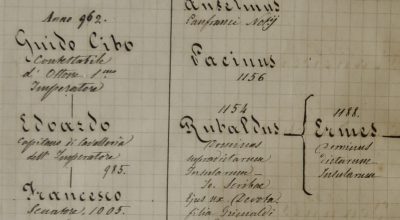 Anno 962.
Guido Cibo
Contestabile
d' Ottone 1mo
Imperatore
Edoardo
capitano di Cavalleria
dell' Imperatore
985.
Francesco
Senatore 1005.
Anselmus
Lanfranci Notrij
Pacinus
1156
1154
Rubaldus
Dominus
supradictarum
Insularum
Ejus ux. Devota
filia Grimaldi
1188.
Ermes
Dominus
Dictarum
Insularum